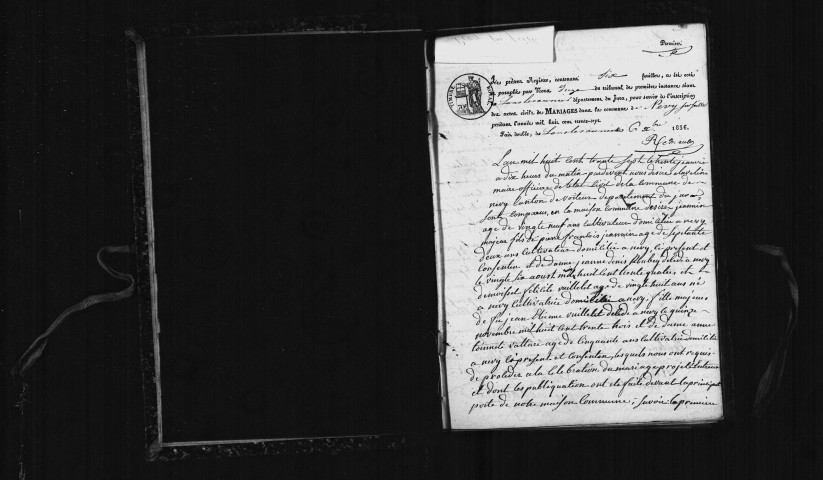 Premier
Le présent Registre, contenant Six feuillets, a été coté
paraphé par Nous Juge du tribunal de première instance séant
département du Jura, pour servir à l'inscription
des actes civils de MARIAGES dans la commune de Nevy sur Seille
pendant l'année mil huit cent trente-sept.
Fait double, à Lons le saunier 6 Xbre 1836.
L'an mil huit cent trente Sept le trente janvier
a dix heurs du matin pardevant nous desire
maire officier de l'etat Civil de la commune de
nevy Canton de Voiteur departement du jura
Sont comparus, en la maison commune desirez jeannin
age de vingt neuf ans cultivateur domicilie a nevy
majeur fils de pierre francois jeannin age de Septante
deux ans cultivateur domicilie a nevy, ci present et
Consentan et de dame jeanne denis decide a nevy
le vingt Six aoust mil huit cent trente quatre et
demoisel felicite vuillelet age de vingt huit ans ne
a nevy Cultivatrice domicilie a nevy, fille majeure
de fu jean Etienne vuillelet decide a nevy le quinze
novembre mil huit cent trente trois et de dame anne
age de Cinquante ans Cultivatrice domicilie
a nevy Ci present et consentan, lesquels nous ont requis
de proceder a la Celebration du mariage projete entreux
et dont les publiquation ont ete faite devant la principal
porte de notre maison Commune, Savoir la premiere